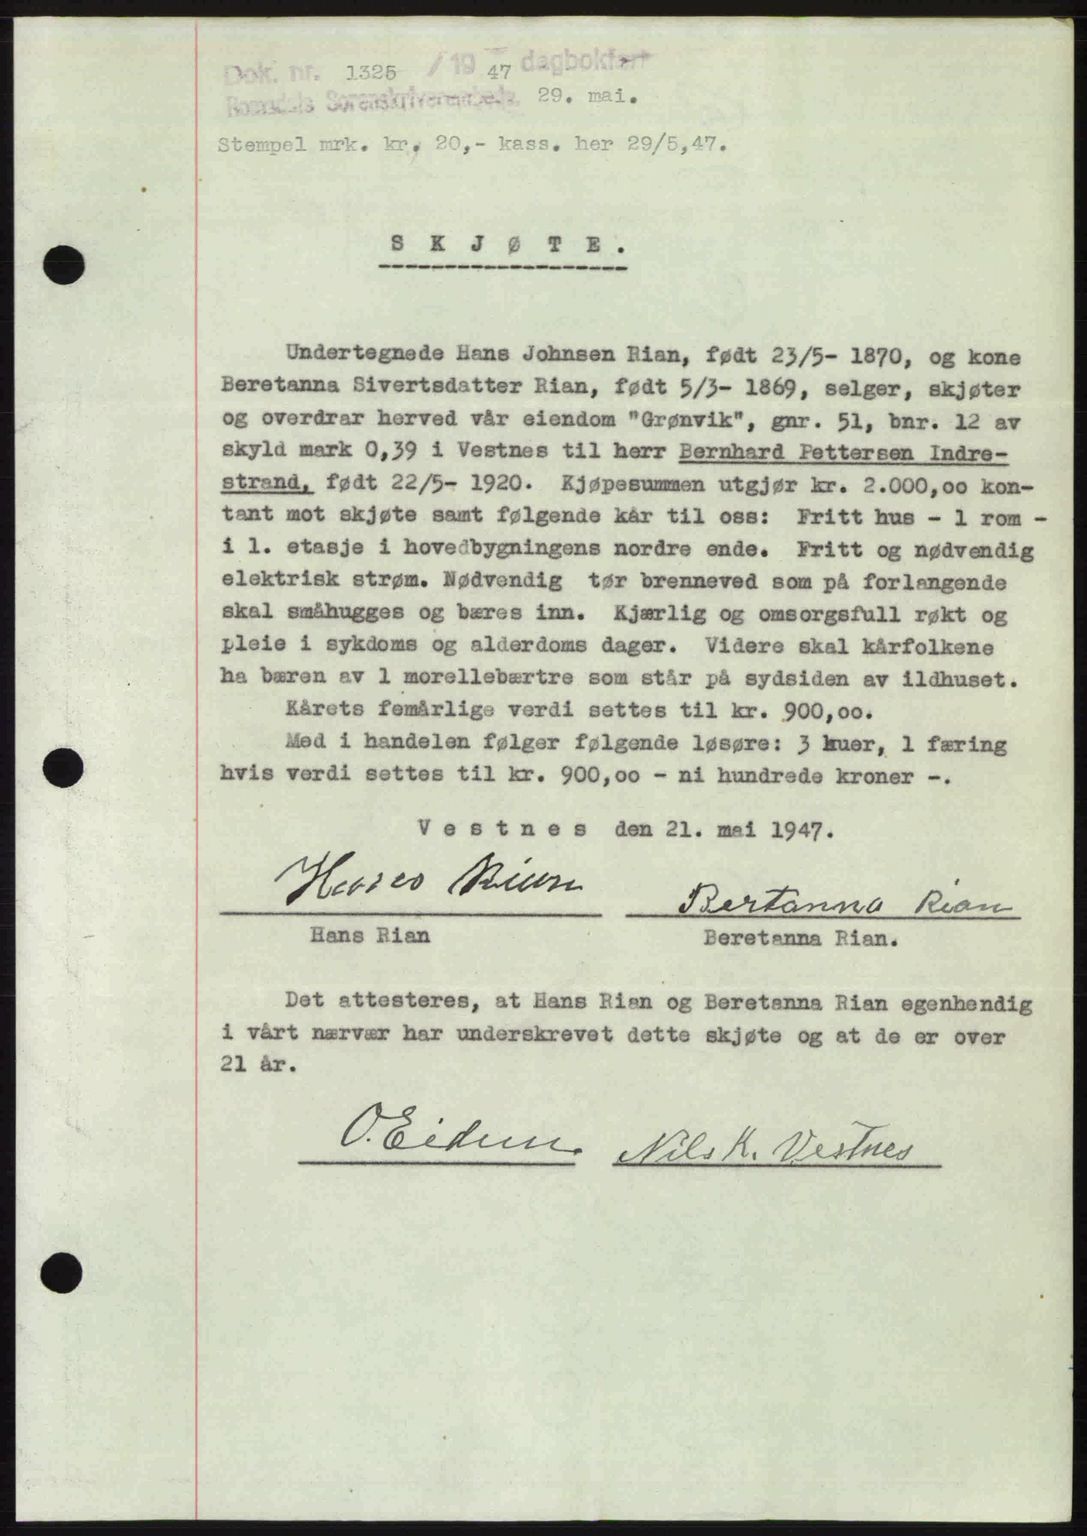 Dok. nr. 1325 / 19 47 dagbokført
Romsdals Sorenskriverembede. 29. mai.
Stempel mrk. kr. 20,- kass. her 29/5,47.
S K J Ø T E .
Undertegnede Hans Johnsen Rian, født 23/5- 1870, og kone
Beretanna Sivertsdatter Rian, født 5/3- 1869, selger, skjøter
og overdrar herved vår eiendom "Grønvik", gnr. 51, bnr. 12 av
skyld mark 0,39 i Vestnes til herr Bernhard Pettersen Indre-
strand, født 22/5- 1920. Kjøpesummen utgjør kr. 2.000,oo kon-
tant mot skjøte samt følgende kår til oss: Fritt hus - 1 rom -
i 1. etasje i hovedbygningens nordre ende. Fritt og nødvendig
elektrisk strøm. Nødvendig tør brenneved som på forlangende
skal småhugges og bæres inn. Kjærlig og omsorgsfull røkt og
pleie i sykdoms og alderdoms dager. Videre skal kårfolkene
ha bæren av 1 morellebærtre som står på sydsiden av ildhuset.
Kårets femårlige verdi settes til kr. 900,oo.
Med i handelen følger følgende løsøre: 3 kuer, 1 færing
hvis verdi settes til kr. 900,oo - ni hundrede kroner -.
V e s t n e s den 21. mai 1947.
Hans Rian Bertanna Rian
Hans Rian Beretanna Rian.
Det attesteres, at Hans Rian og Beretanna Rian egenhendig
i vårt nærvær har underskrevet dette skjøte og at de er over
21 år.
O. Eidum Nils K. Vestnes